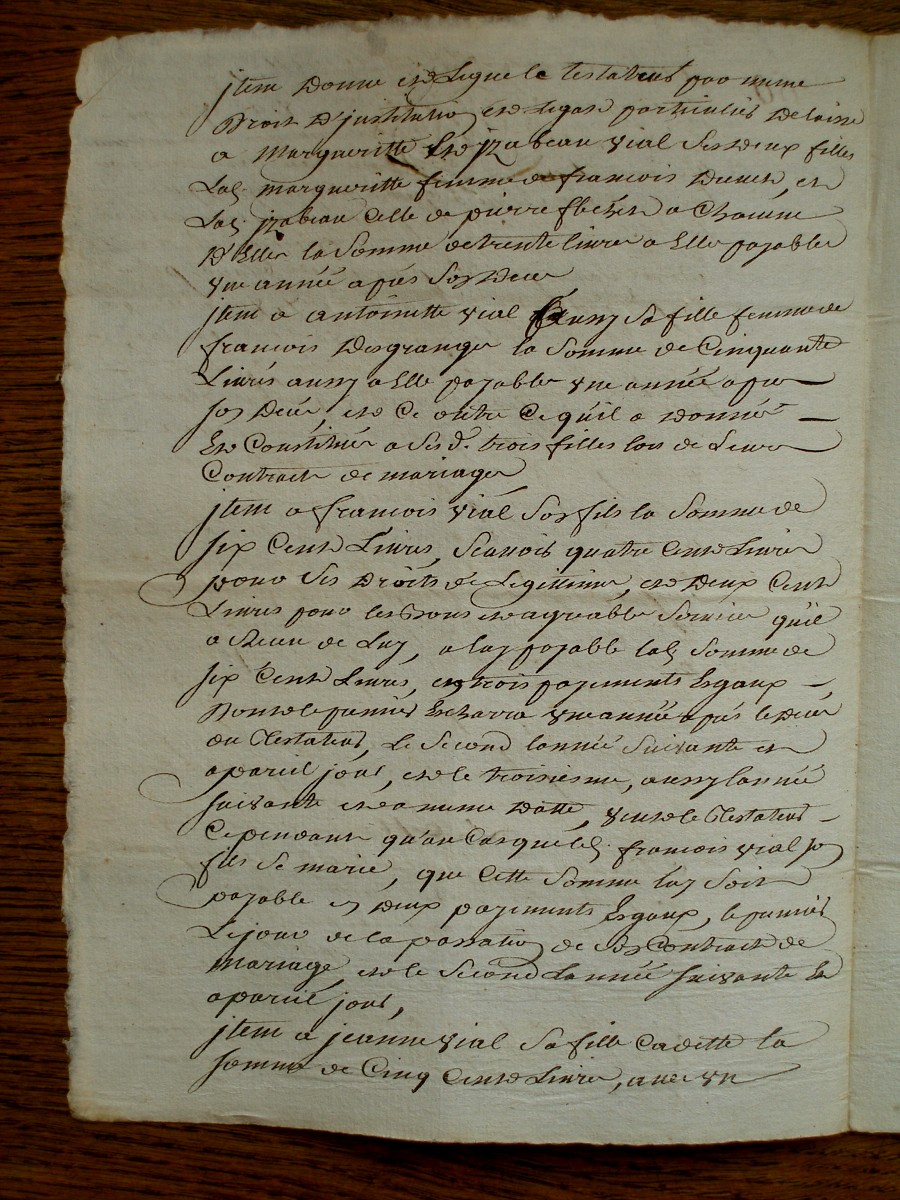 jtem donne et Legue le testateur par meme
Droit D'justitution et legat particulier Delaisse
a Margueritte Et jzabeau vial Ses deux filles
Lad. margueritte femme de francois et
Lad. jzabeau Celle de pierre a Chacune
D'Elles la Somme de trente livres a Elles payables
vne année aprés Son Deces
jtem a antoinette vial aussy Sa fille femme de
francois Desgranges la Somme de Cinquante
Livres aussy a Elle payables vne année apres
Son Decés, et Ce outre Ce qu'il a Donné
Et Constitué a Ses d. trois filles lors de Leurs
Contracts de mariages
jtem a francois vial Son fils la Somme de
Six Cents Livres, Scavoir quatre Cents Livres
pour Ses Droits de Legittime, et Deux Cents
Livres pour les bons et agreables Services qu'il
a Receu de Luy, a luy payable lad. Somme de
Six Cents Livres, en trois payements Esgaux
Dont le premier Escherra vne année aprés le Deces
du Testateur, Le Second lannée Suivante et
a pareil jour, et le troisieme, aussy lannée
Suivante et a meme Datte, veut le Testateur
Cependant qu'au Cas que led. francois vial Son
fils Se marie, que Cette Somme luy Soit
payable en Deux payements Esgaux, le premier
Le jour de la passation de Son Contract de
Mariage, et le Second Lannée Suivante Et
a pareil jour,
jtem a jeanne vial Sa fille Cadette la
Somme de Cinq Cents Livres, avec vn